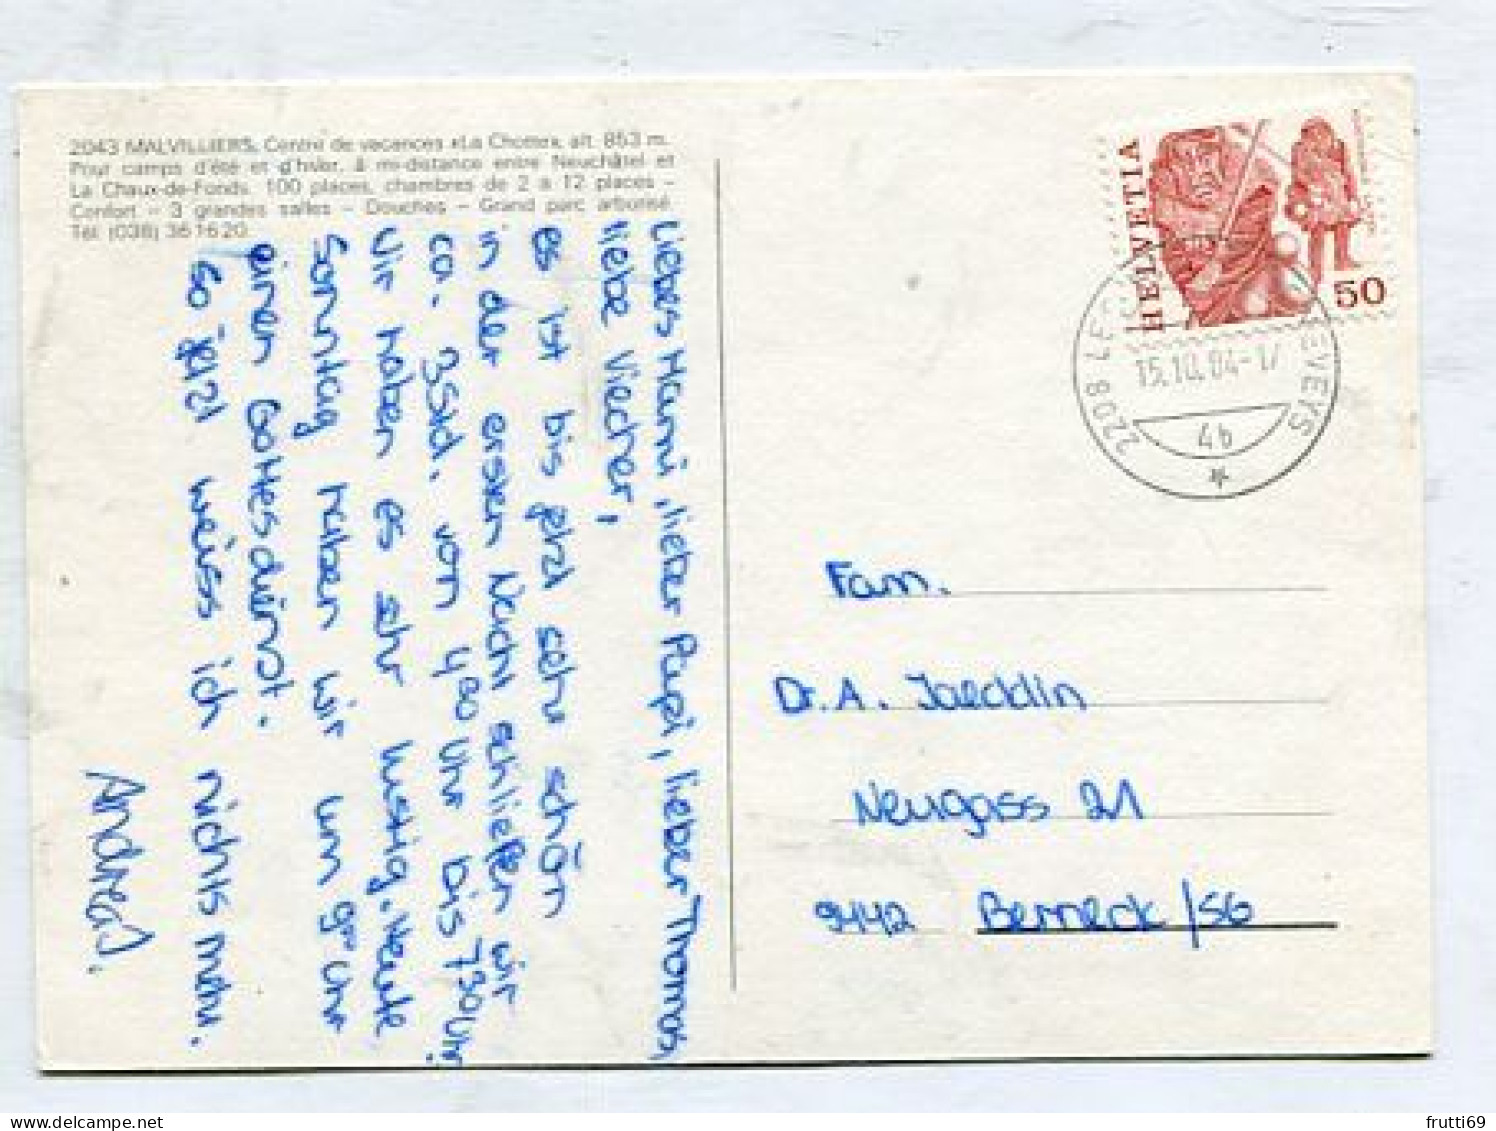 2043 MALVILLIERS, Centre de vacances «La Chotte», alt. 853 m.
Pour camps d'été et d'hiver, à mi-distance entre Neuchâtel et
La Chaux-de-Fonds. 100 places, chambres de 2 à 12 places –
Confort – 3 grandes salles – Douches – Grand parc arborisé.
Tél. (038) 36 16 20.
Liebes Mami, lieber Papi, lieber Thomas,
liebe Viecher,
es ist bis jetzt sehr schön
in der ersten Nacht schliefen wir
ca. 3Std. von 4 00 Uhr bis 7 30 Uhr.
Wir haben es sehr lustig. Heute
Sonntag haben wir um 9 Uhr
einen Gottesdienst.
So jetzt weiss ich nichts mehr.
Andrea.
HELVETIA
50
2208 LES EYS
15.10.84-17
4b
Fam.
Dr. A. Jaeddin
Neugass 21
9442 Berneck /SG
frutti69